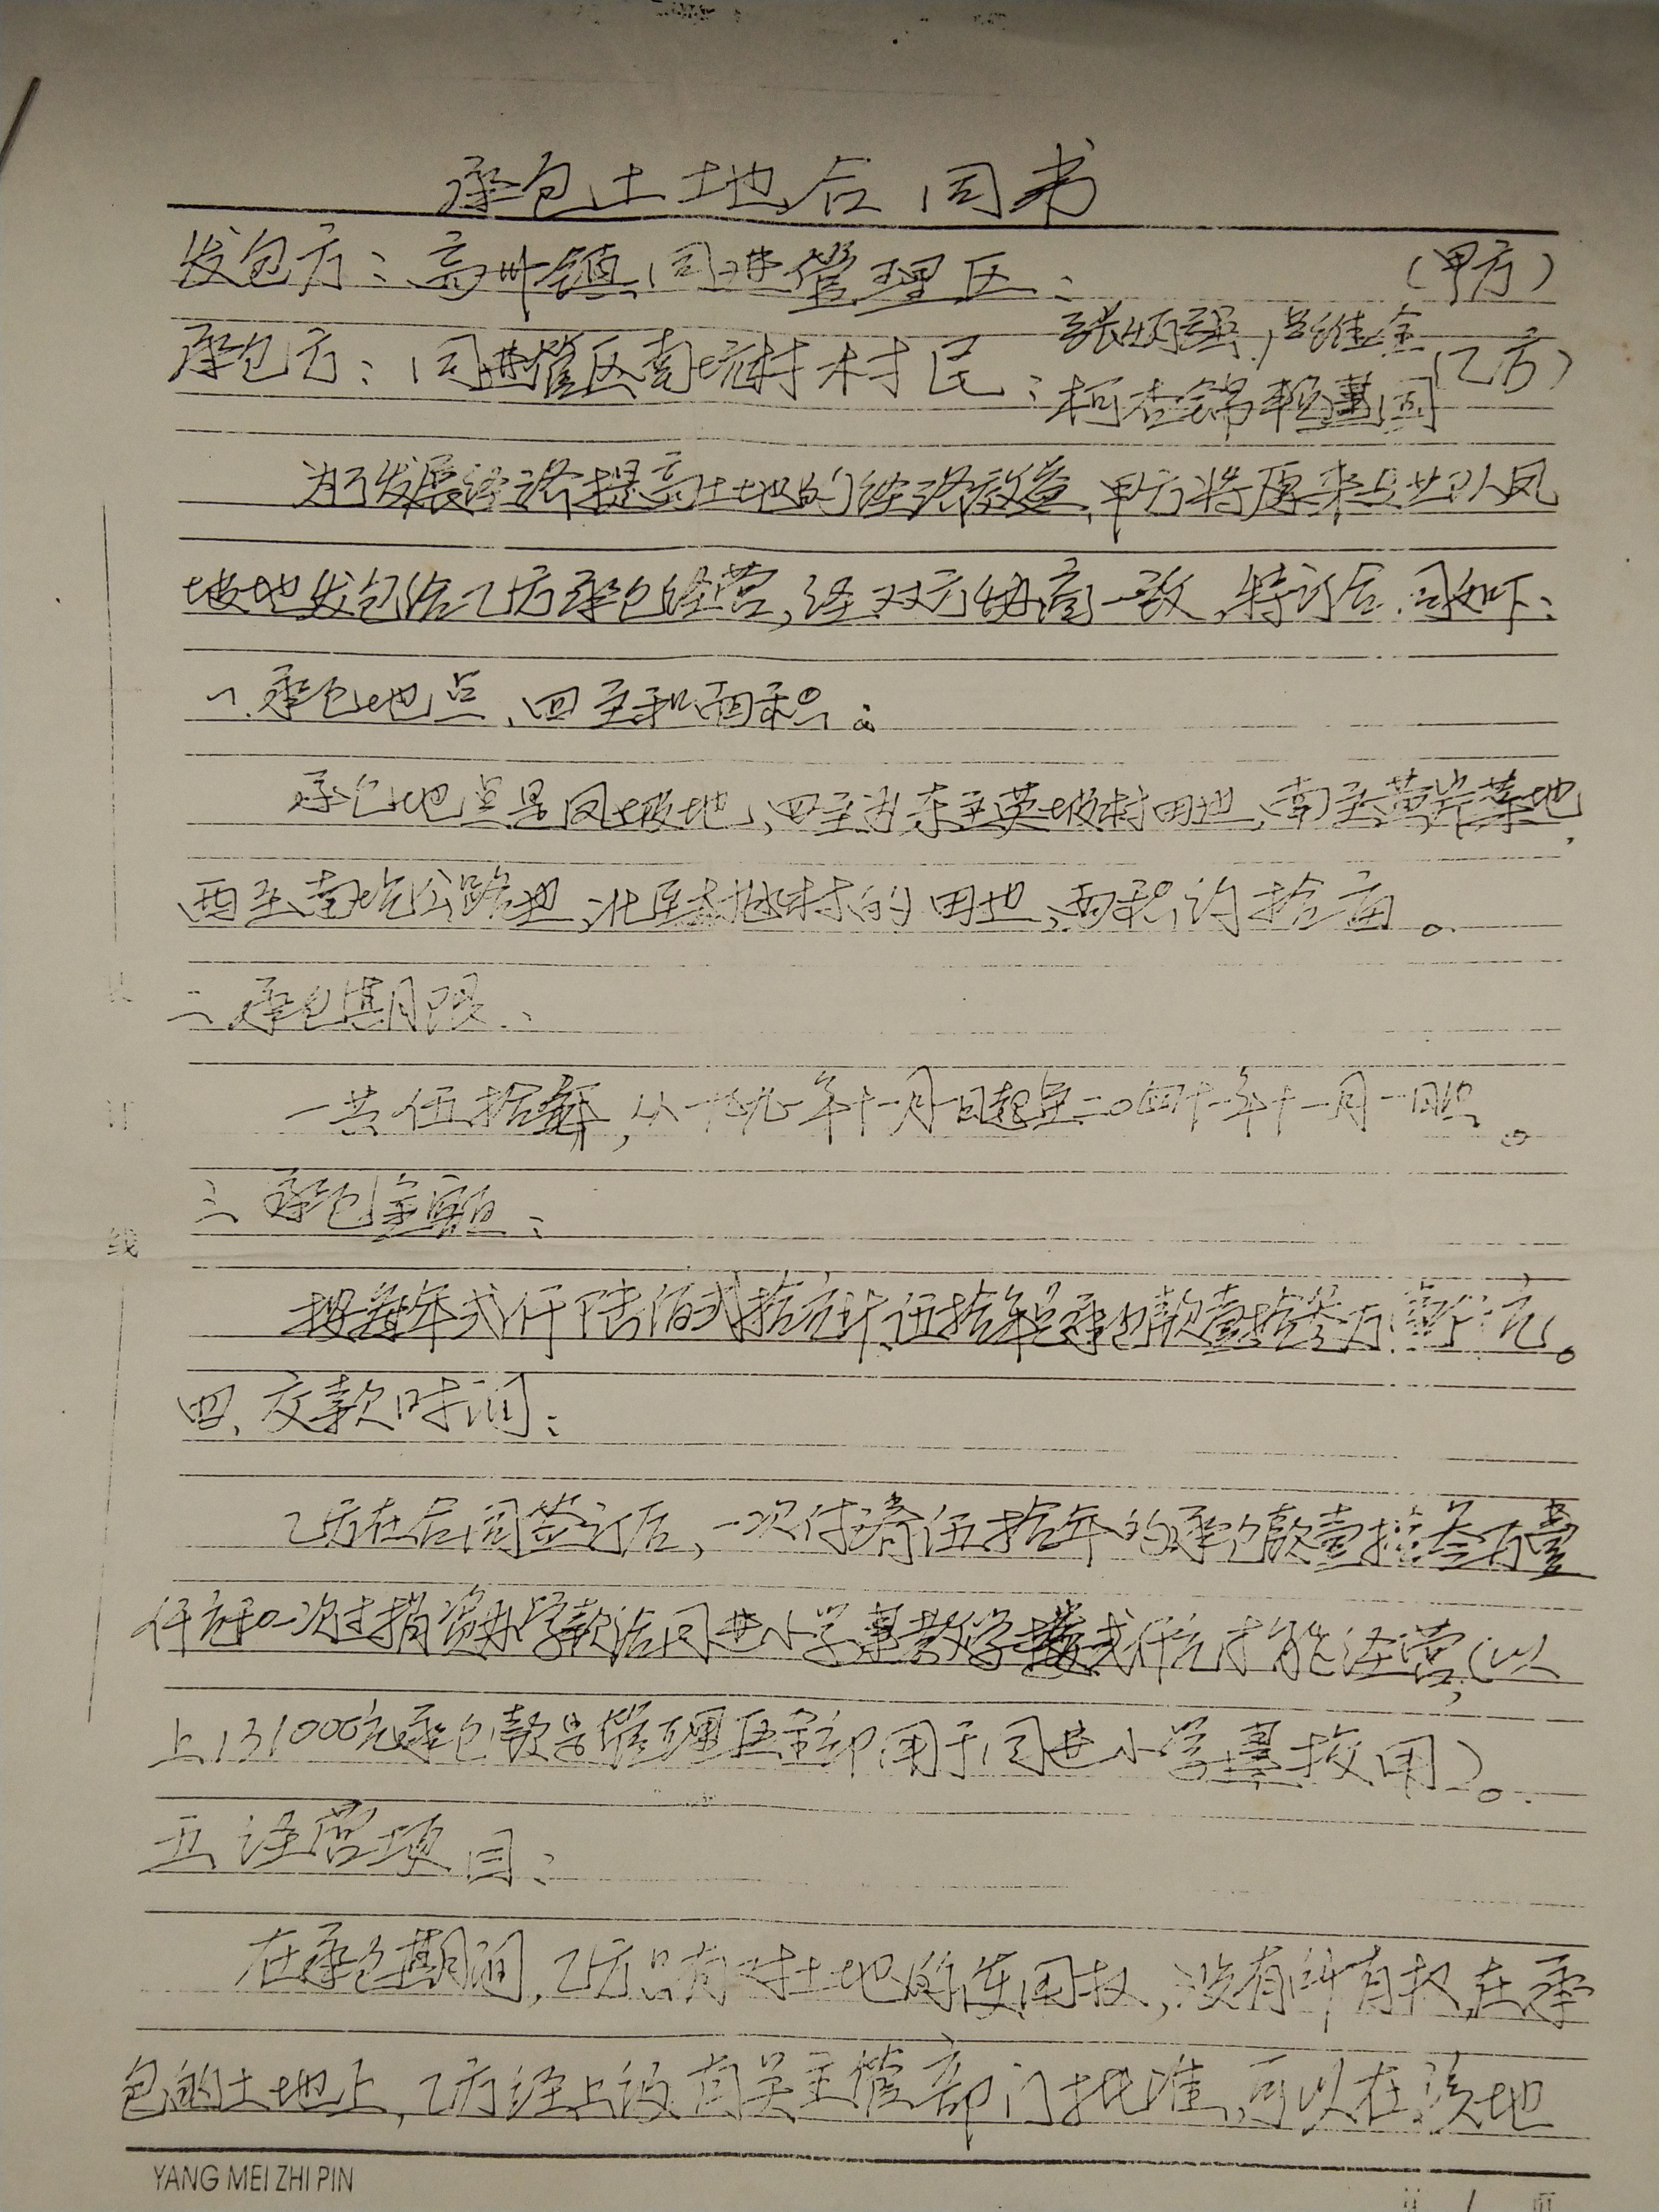 承包土地合同书
发包方：高州镇同进管理区： （甲方）
承包方：同进管区南坑村村民：张炳强 吕维金 （乙方）
柯杏锦
为了发展经济提高土地的经济效益，甲方将原来 队凤
坡地发包给乙方承包经营，经双方协商一致，特订合同如下：
一、承包地点、四至和面积：
承包地点是凤坡地，四至为东至英坡村田地，南至 地，
西至南坑公路边，北至 村的田地，面积约拾亩。
二、承包期限：
一共伍拾年，从一九九一年十一月一日起至二〇四十一年十一月一日止。
三、承包金额：
按每年弍仟陆佰弍拾元计，伍拾年总承包款壹拾叁万壹仟元。
四、交款时间：
乙方在合同签订后，一次付清伍拾年的承包款壹拾叁万壹
仟元和一次过捐资办学款给同进小学建教学楼弍仟元才能经营，（以
上131000元承包款是管理区全部用于同进小学建校用）。
五、经营项目：
在承包期间，乙方只有对土地的使用权，没有所有权，在承
包的土地上，乙方经上级有关主管部门批准，可以在该地
订
线
YANG MEI ZHI PIN
第 1 页